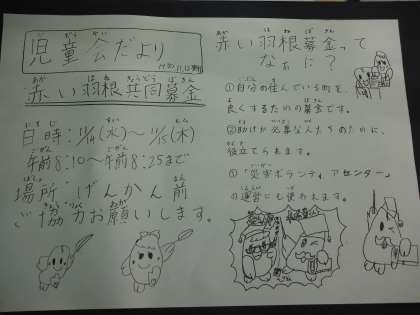 児童会だより
赤い羽根共同募金
日時:11/14(水)〜11/15(木)
午前8:10〜午前8:25まで
場所 げんかん前
ご協力お願いします。
赤い羽根募金って
なぁに?
①自分の住んでいる町を、
良くするための募金です。
②助けが必要な人たちのために、
役立てられます。
「災害ボランティアセンター」
の運営にも使われます。